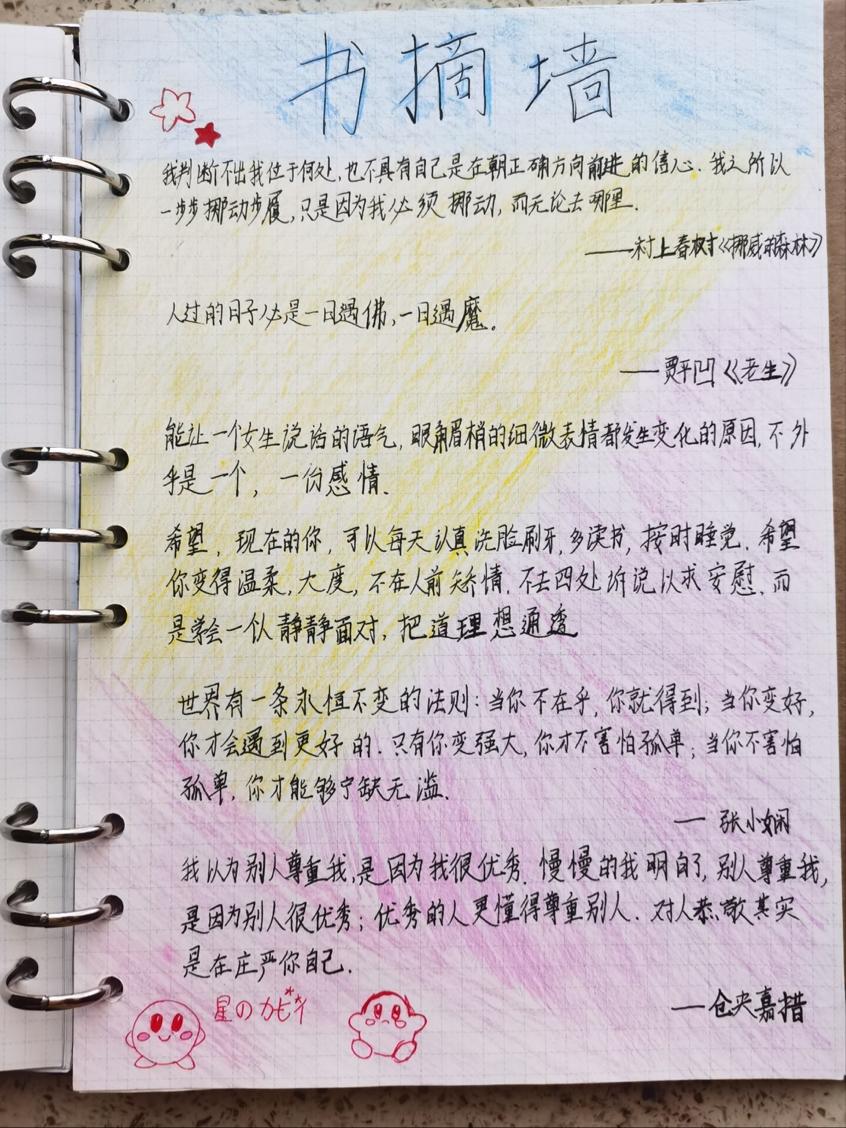 书摘墙
我判断不出我位于何处,也不具有自己是在朝正确方向前进的信心.我之所以
一步步挪动步履,只是因为我必须挪动,而无论去哪里.
——村上春树《挪威的森林》
人过的日子必是一日遇佛,一日遇魔。
——贾平凹《老生》
能让一个女生说话的语气,眼角眉梢的细微表情都发生变化的原因,不外
乎是一个,一份感情.
希望,现在的你,可以每天认真洗脸刷牙,多读书,按时睡觉.希望
你变得温柔,大度,不在人前矫情.不去四处诉说以求安慰.而
是学会一个人静静面对,把道理想通透
世界有一条永恒不变的法则:当你不在乎,你就得到;当你变好,
你才会遇到更好的.只有你变强大,你才不害怕孤单;当你不害怕
孤单,你才能够宁缺无滥.
— 张小娴
我以为别人尊重我,是因为我很优秀.慢慢的我明白了,别人尊重我,
是因为别人很优秀;优秀的人更懂得尊重别人.对人恭敬其实
是在庄严你自己.
—仓央嘉措
星のカービィ